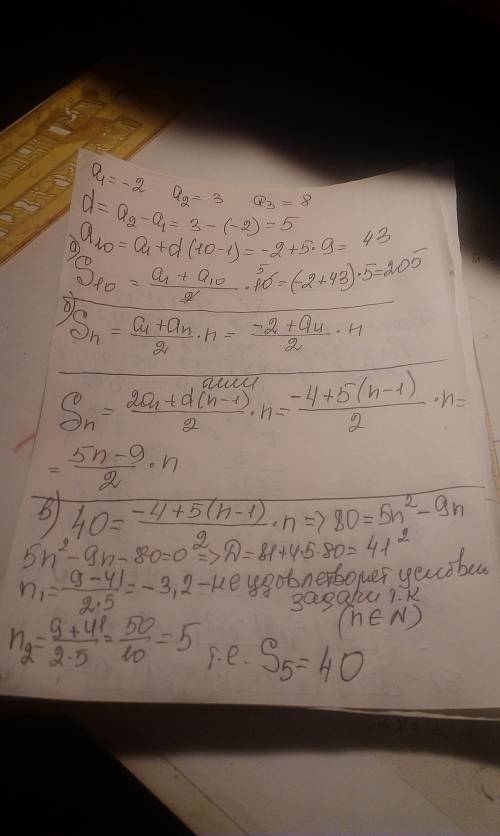 a₁ = -2 a₂ = 3 a₃ = 8
d = a₂ - a₁ = 3 - (-2) = 5
а) a₁₀ = a₁ + d(10-1) = -2 + 5·9 = 43
S₁₀ = (a₁ + a₁₀)/2 · 10 5 = (-2+43)·5 = 205
б) Sₙ = (a₁ + aₙ)/2 · n = (-2 + aₙ)/2 · n
или
Sₙ = (2a₁ + d(n-1))/2 · n = (-4 + 5(n-1))/2 · n =
= (5n-9)/2 · n
в) 40 = (-4 + 5(n-1))/2 · n => 80 = 5n² - 9n
5n² - 9n - 80 = 0 => D = 81 + 4·5·80 = 41²
n₁ = (9-41)/(2·5) = -3,2 - не удовлетворят условию
задачи т.к
(n ∈ N)
n₂ = (9+41)/(2·5) = 50/10 = 5 т.е. S₅ = 40